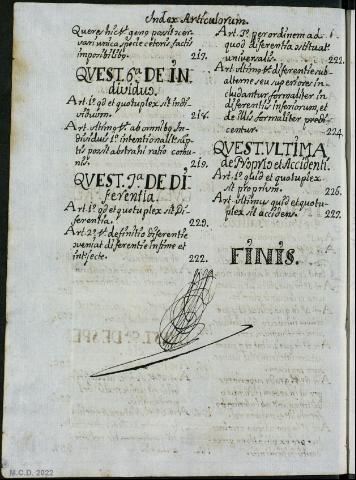 Index Articulorum.
Queres hic vt. genꝰ possit conser-
vari unica specie ceteris factis
impossibilibꝰ. 217.
QVEST. 6ª DE IN
dividuo.
Art. 1ꝰ qd et quotuplex sit indi-
viduum. 218.
Art. ultimꝰ vt. ab omnibꝰ In-
dividuis 1ᵉ intentionalit. sup-
tis possit abstrahi ratio comu-
nis. 219.
QVEST. 7ª DE DI-
ferentia.
Art. 1ꝰ qd et quotuplex sit Di-
ferentia. 221.
Art. 2ꝰ vt definitio Diferentie
veniat diferentie infime et
intjecte. 222.
Art. 3ꝰ per ordinem ad
quod Diferentia costituat
universalis. 222.
Art. ultimꝰ vt. diferentie sub-
alterne seu superiores in-
cludantur formaliter in
diferentiis inferiorum, et
de illis formaliter predi-
centur. 224.
QUEST. VLTIMA
de Proprio et Accidenti.
Art. 1ꝰ quid et quotuplex
sit proprium. 226.
Art. ultimus quid et quotu-
plex sit accidens. 227.
FINIS.
M.C.D. 2022